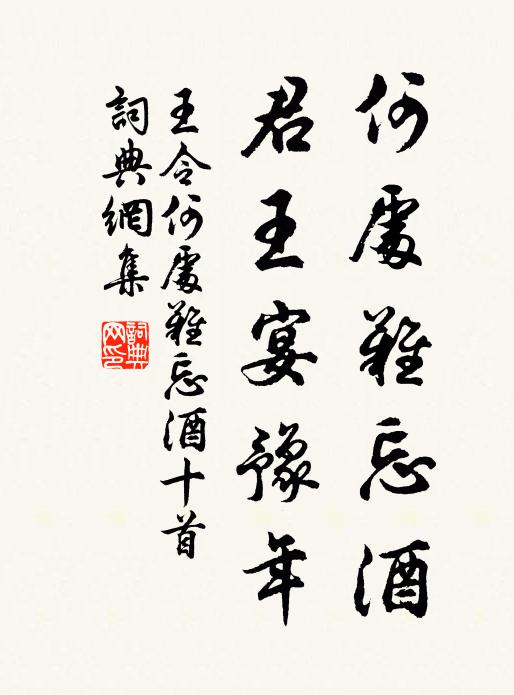 何處難忘酒
君王宴豫年
王令何處難忘酒十首
詞典網集
詞典網印